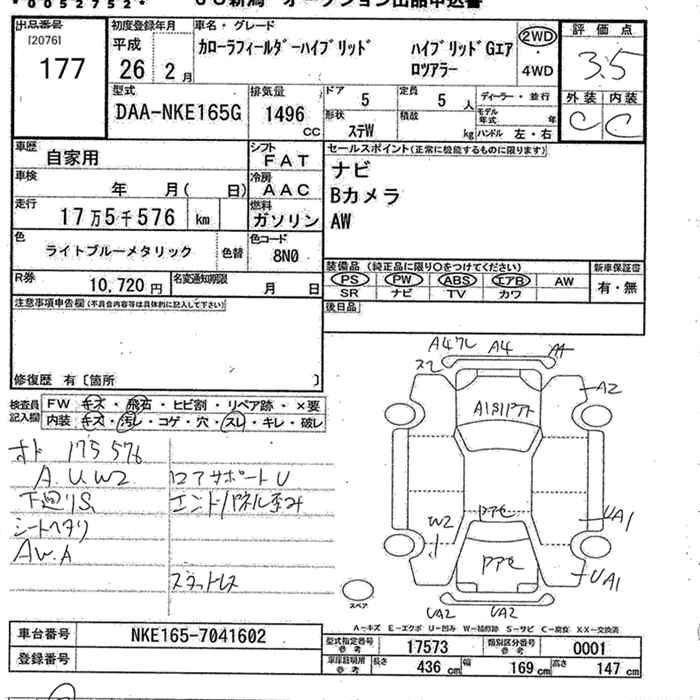 *0052752*
オークション出品申込書
出品番号
[2076]
177
初度登録年月
平成
26年 2月
車名・グレード
カローラフィールダーハイブリッド
ハイブリッドGエア
ロツアラー
2WD
4WD
評価点
3.5
外装 内装
C C
型式
DAA-NKE165G
排気量
1496
CC
ドア
5
定員
5人
ディーラー・並行
モデル年式 年
形状
ステW
積載
kg
ハンドル 左・右
車歴
自家用
シフト
FAT
車検
年 月( 日)
冷房
AAC
走行
17万5千576 km
燃料
ガソリン
色
ライトブルーメタリック
色替
色コード
8N0
R券
10,720円
名変通知期限
月 日
セールスポイント(正常に機能するものに限ります)
ナビ
Bカメラ
AW
装備品(純正品に限り○をつけてください)
PS PW ABS エアB AW
SR ナビ TV カワ
新車保証書
有・無
後日品
注意事項申告欄(不具合内容等は具体的に記入して下さい)
修復歴 有〔箇所 〕
検査員
記入欄
FW キズ・飛石・ヒビ割・リペア跡・×要
内装 キズ・汚レ・コゲ・穴・スレ・キレ・破レ
オド 175576
A.U.W2
下廻りS
シートヘタリ
AW.A
ロアサポートU
エンドパネル歪み
スタットレス
A4 A4
A2
W2
UA1
UA1
UA2 UA2
スペア
A-キズ E-エクボ U-凹み W-補修跡 S-サビ C-腐食 XX-交換済
車台番号
NKE165-7041602
登録番号
型式指定番号
参考
17573
類別区分番号
参考
0001
車庫証明用
参考
長さ 436cm
幅 169cm
高さ 147cm